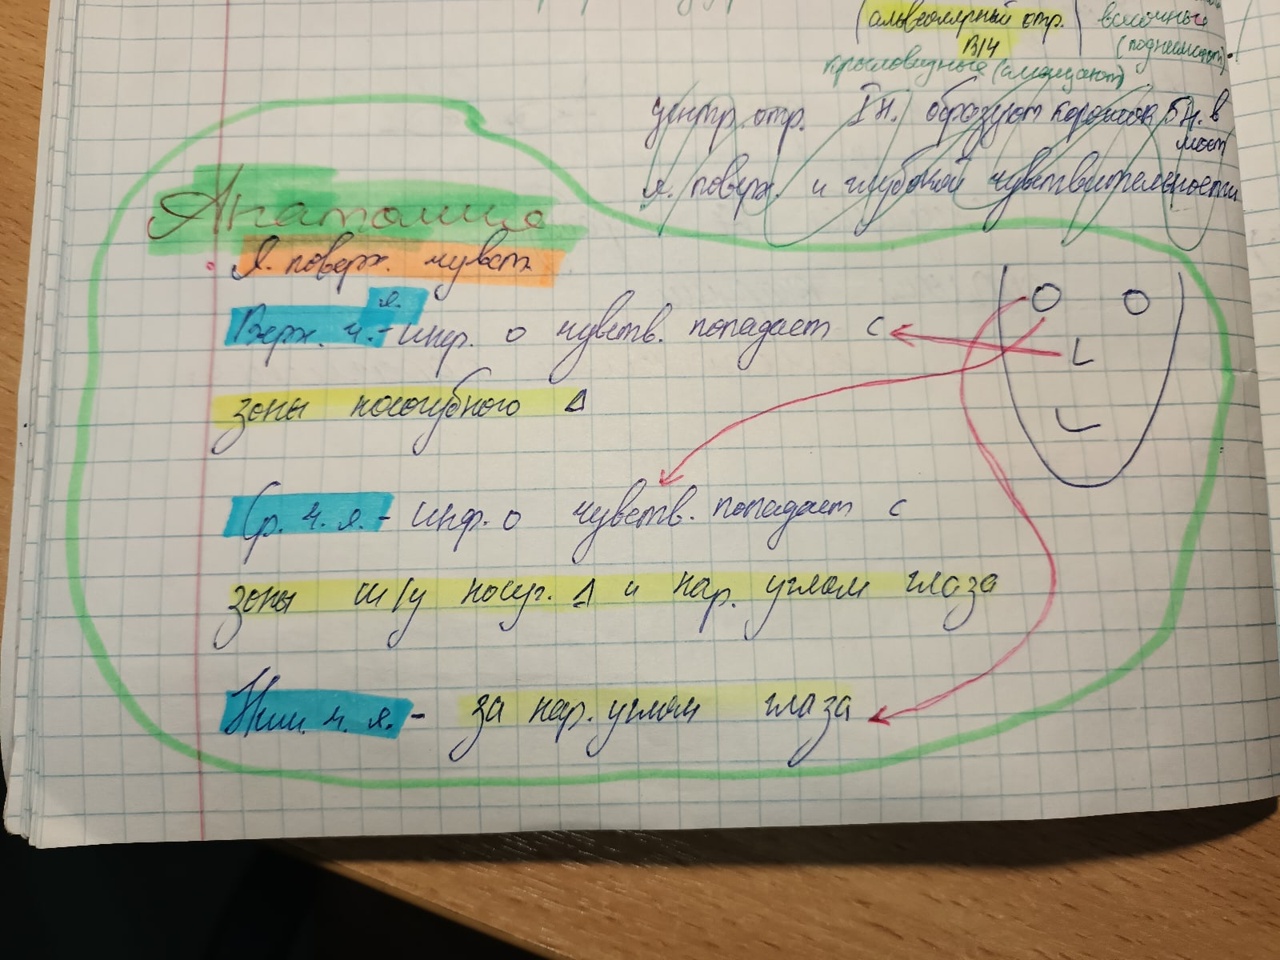 (альвеолярный отр.
В/Ч
височные
(поднимают).
крыловидные (смещают)
центр. отр. I н. образуют корешок 5 н. в
мост
я. поверх. и глубокой чувствительности
Анатомия
Я. поверх. чувств
Верх. ч. я. - инф. о чувств. попадает с
зоны носогубного Δ
Ср. ч. я. - инф. о чувств. попадает с
зоны м/у носуг. Δ и нар. углом глаза
Ниж. ч. я. - за нар. углом глаза